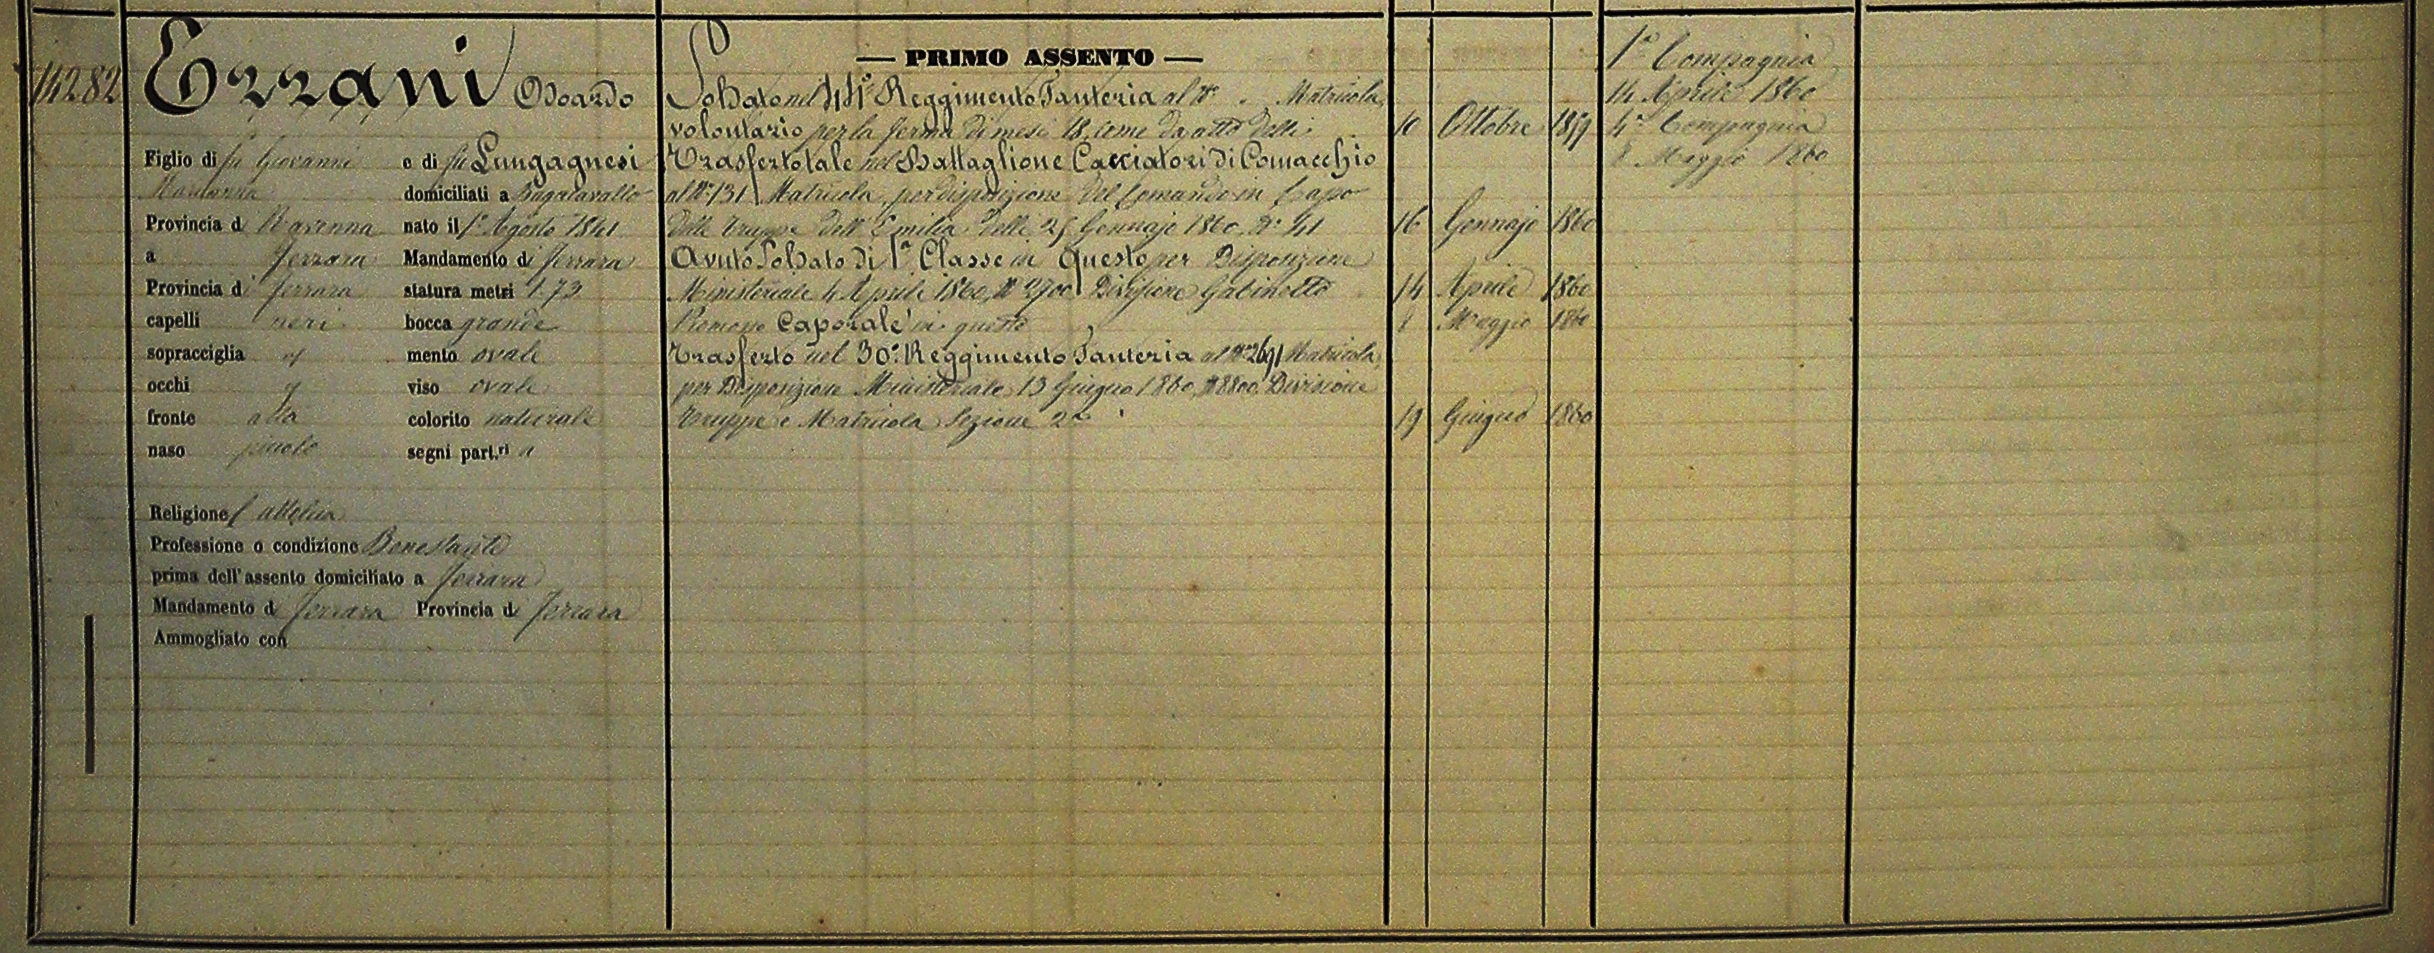 14282
Errani Odoardo
Figlio di fu Giovanni e di fu Lungagnesi
Marianna domiciliati a Bagnacavallo
Provincia di Ravenna nato il 1° Agosto 1841
a Ferrara Mandamento di Ferrara
Provincia di Ferrara statura metri 1.73
capelli neri bocca grande
sopracciglia id mento ovale
occhi id viso ovale
fronte alta colorito naturale
naso piccolo segni part.ri
Religione Cattolica
Professione o condizione Benestante
prima dell'assento domiciliato a Ferrara
Mandamento di Ferrara Provincia di Ferrara
Ammogliato con
— PRIMO ASSENTO —
Soldato nel Reggimento Fanteria al N° . Matricola,
volontario per la ferma di mesi 18, come da atto delli . 10 Ottobre 1859
Trasferto tale nel Battaglione Cacciatori di Comacchio
al N° 131 Matricola, per disposizione del Comando in Capo
delle truppe dell'Emilia delle 25 Gennajo 1860. N° 41 16 Gennajo 1860
Avuto Soldato di 1a Classe in questo per Disposizione
Ministeriale 4 Aprile 1860, N° 2900 Divisione Gabinetto 14 Aprile 1860
Promosso Caporale in questo Maggio 1860
Trasferto nel 30° Reggimento Fanteria al N° 2691 Matricola,
per Disposizione Ministeriale 13 Giugno 1860, N 8800, Divisione
Truppe e Matricola Sezione 2a 19 Giugno 1860
1a Compagnia
14 Aprile 1860
4a Compagnia
8 Maggio 1860